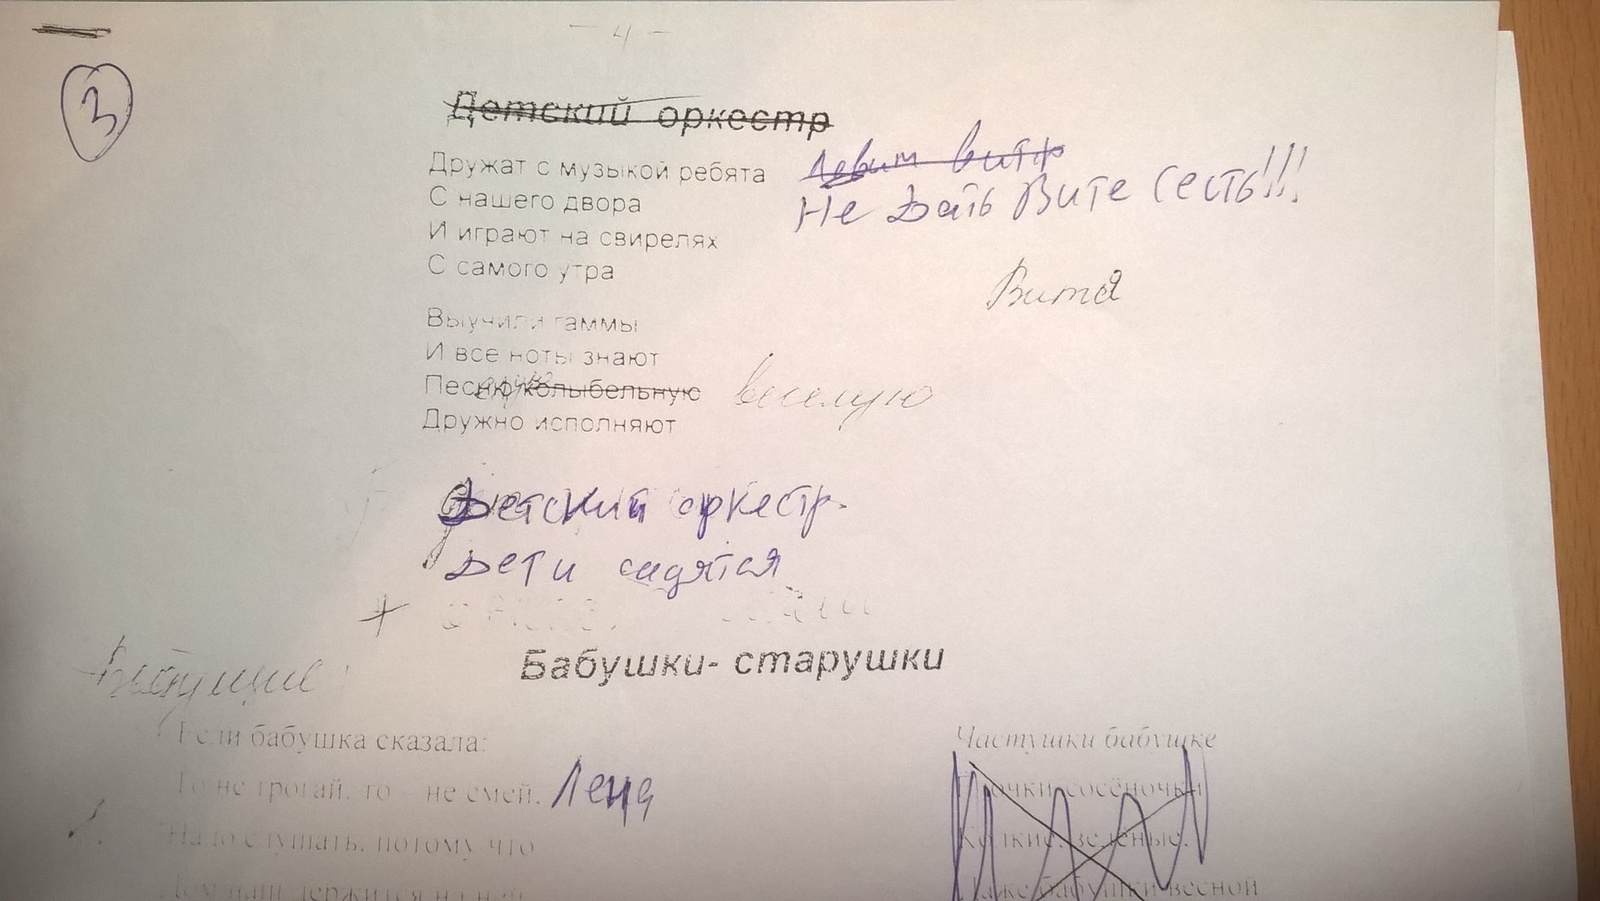 - 4 -
3
Детский оркестр
Дружат с музыкой ребята
Ловим Витю
С нашего двора
Не дать Вите сесть!!!
И играют на свирелях
С самого утра
Витя
Выучили гаммы
И все ноты знают
Песню колыбельную веселую
Дружно исполняют
Детский оркестр.
Дети садятся
+
Бабушки- старушки
Если бабушка сказала:
То не трогай, то - не смей, Лена
Надо слушать, потому что
Дом наш держится на ней
Частушки бабушке
Ёлочки сосёночки
Колкие, зеленые.
Даже бабушки весной